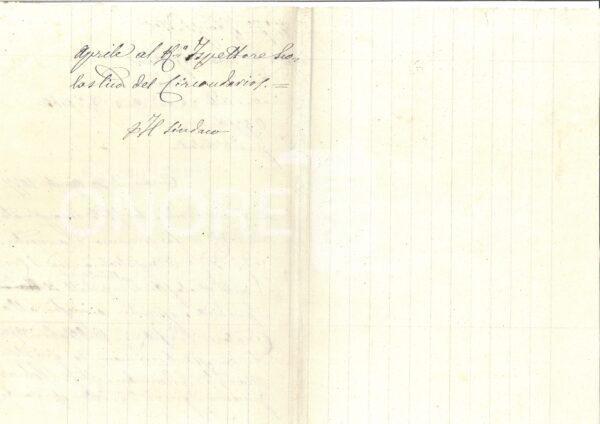 Aprile al R.º Ispettore Sco-
lastico del Circondario. =
Il Sindaco
ONORE